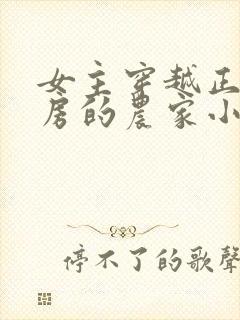 女主穿越正
房的農家小
停不了的歌聲